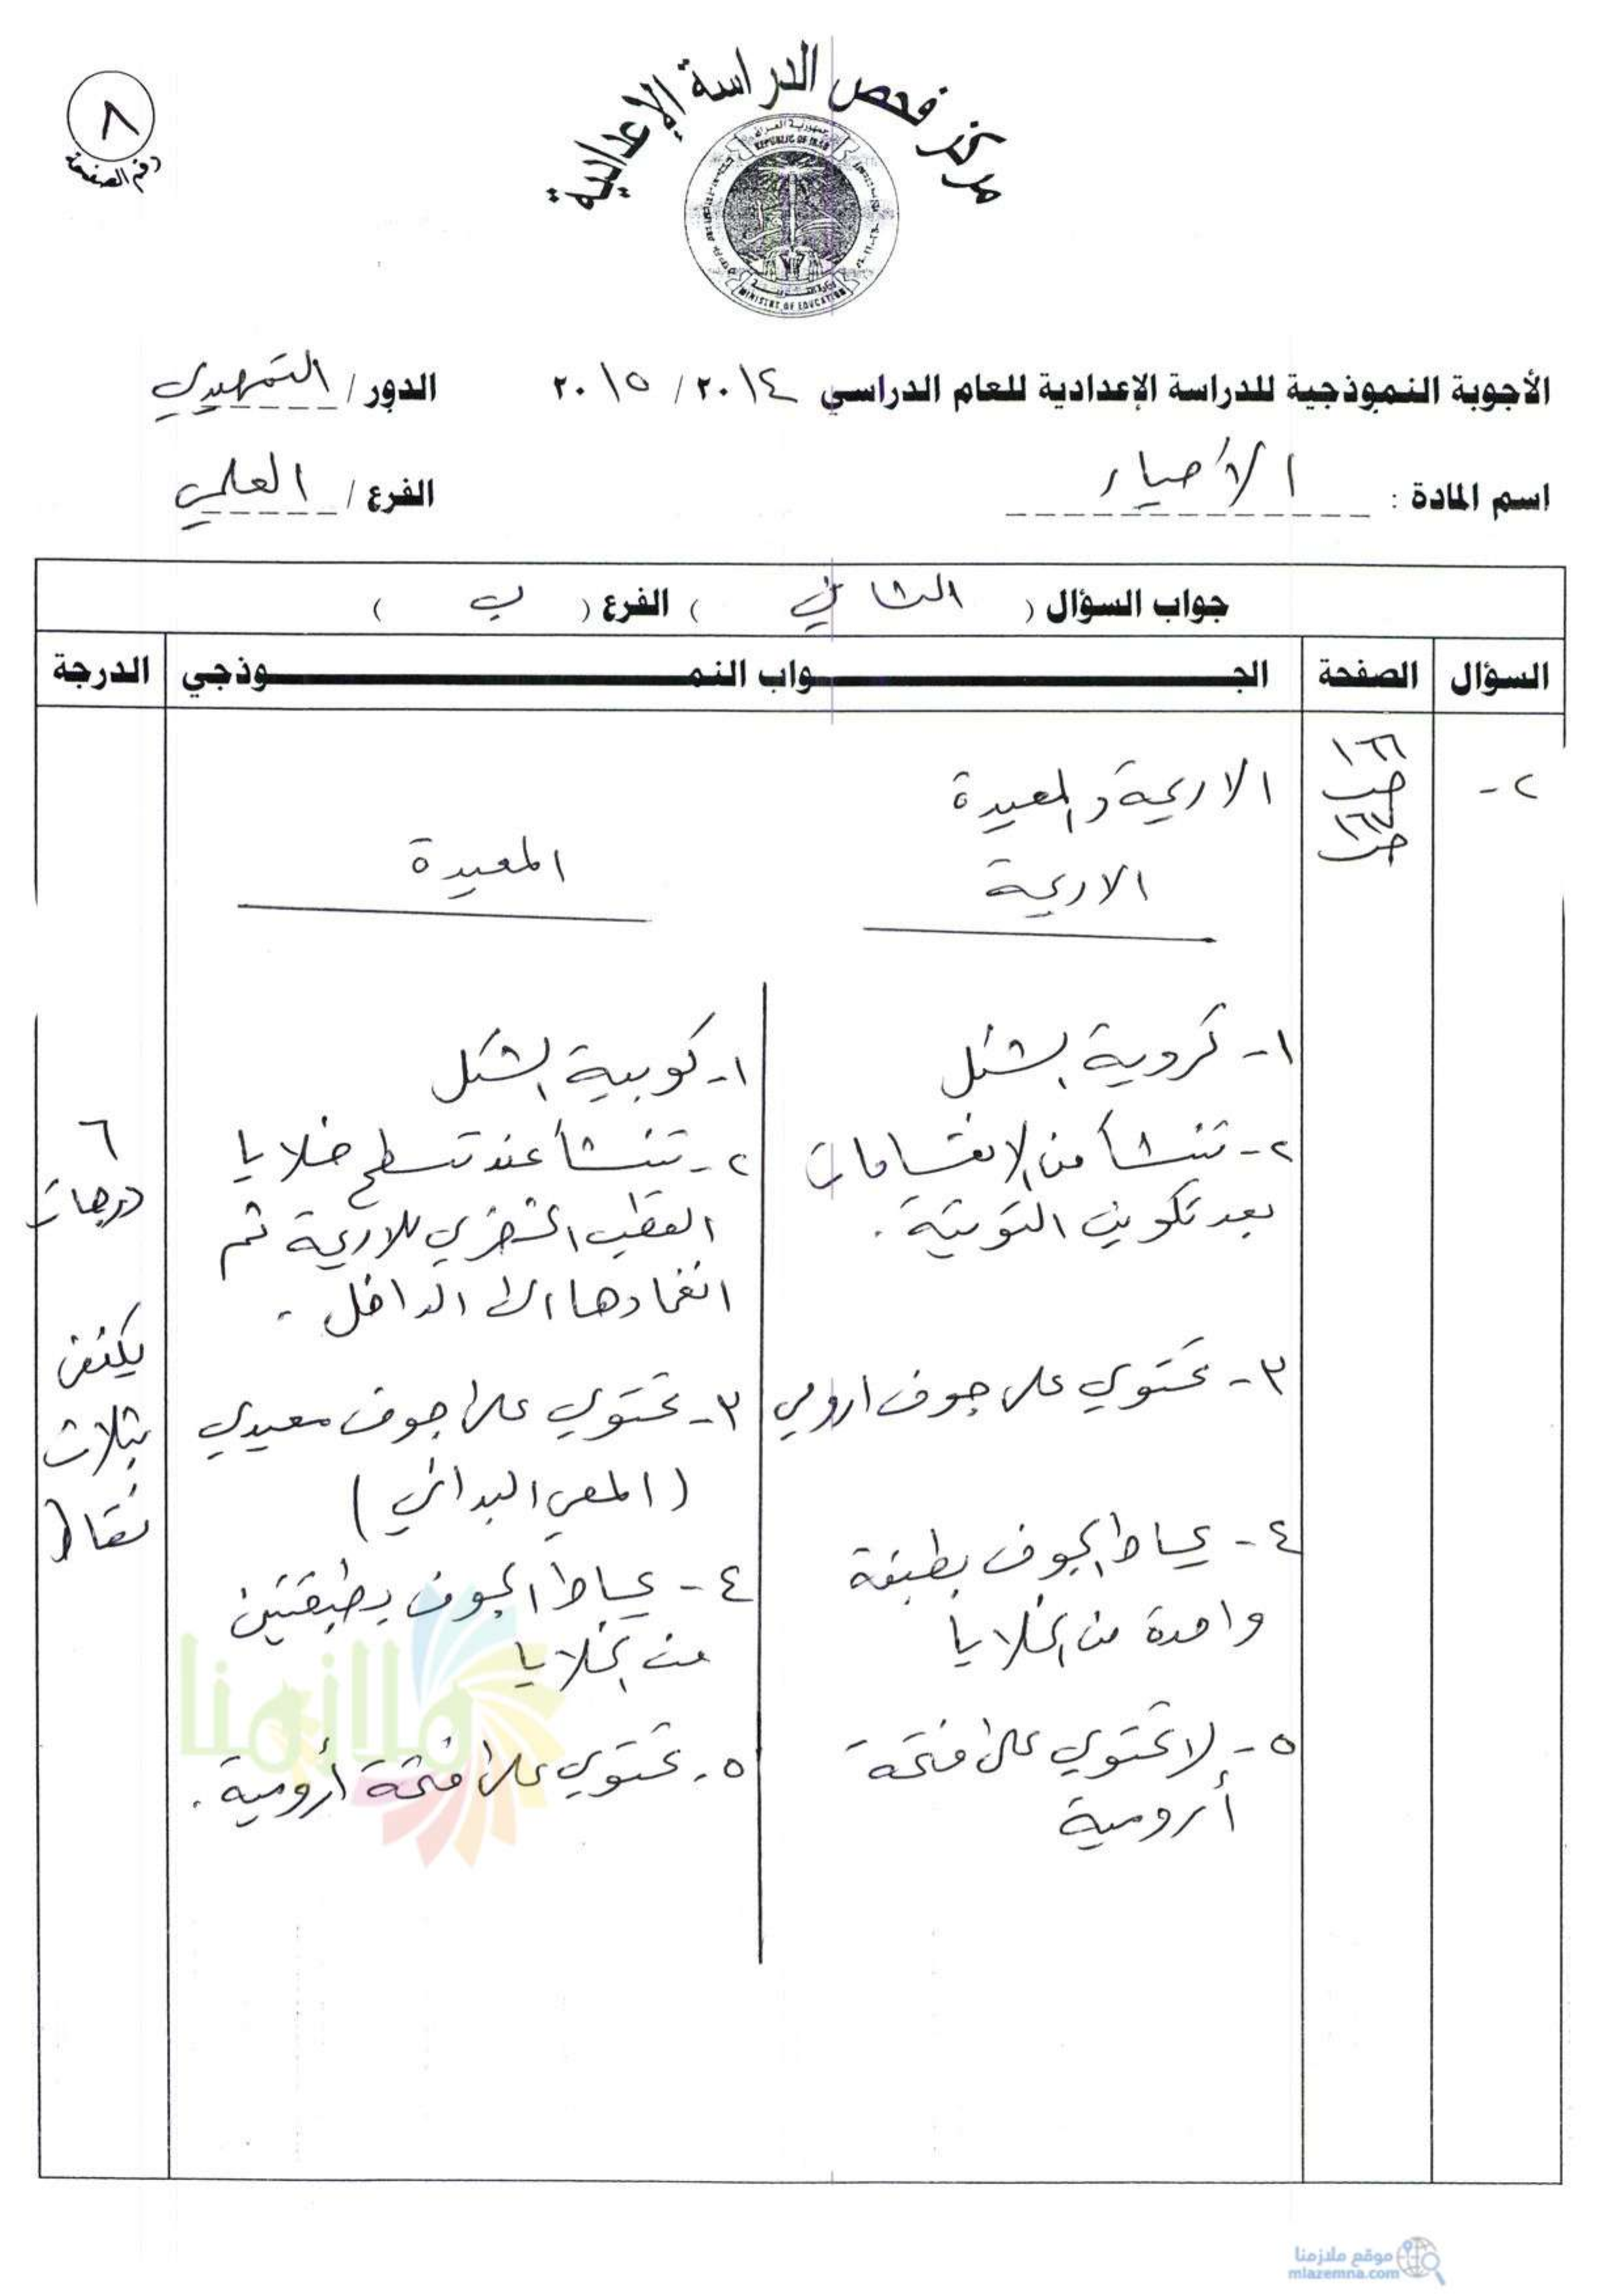 مركز فحص الدراسة الإعدادية
٨
رقم الصفحة
جمهورية العراق
REPUBLIC OF IRAQ
MINISTRY OF EDUCATION
الأجوبة النموذجية للدراسة الإعدادية للعام الدراسي ٢٠١٤ / ٢٠١٥ الدور / التمهيدي
اسم المادة : الأحياء الفرع / العلمي
جواب السؤال ( الثاني ) الفرع ( ب )
السؤال الصفحة الجـواب النمـوذجي الدرجة
٢- ١٦٦ الاريمة والمعيدة
ص
١٦٧
ص
الاريمة المعيدة
١- كروية الشكل
٢- تنشأ من الانقسامات
بعد تكوين التويتة .
٣- تحتوي على جوف ارومي
٤- يحاط الجوف بطبقة
واحدة من الخلايا
٥- لا تحتوي على فتحة
أرومية
١- كوبية الشكل
٢- تنشأ عند تسطح خلايا
القطب الخضري للاريمة ثم
انغمادها الى الداخل .
٣- تحتوي على جوف معيدي
( المعي البدائي )
٤- يحاط الجوف بطبقتين
من الخلايا
٥- تحتوي على فتحة أرومية .
٦
درجات
يكتفى
بثلاث
نقاط
ملازمنا
موقع ملازمنا
mlazemna.com